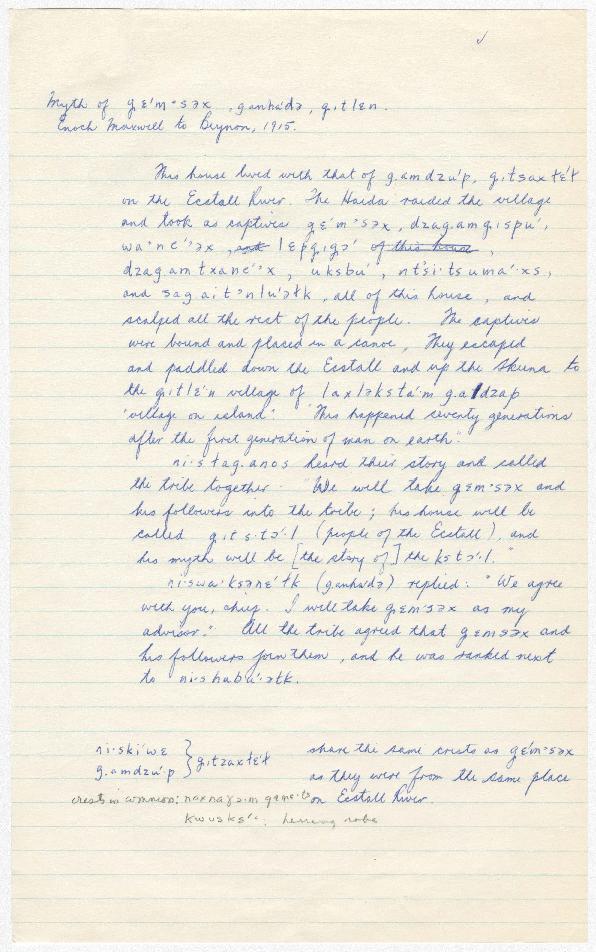 Myth of gɛ'm·səx, ganha'də, g.ıtlɛn.
Enoch Maxwell to Beynon, 1915.
This house lived with that of g.amdzu'p, g.ıtsaxłɛ'ł
on the Ecstall River. The Haida raided the village
and took as captives gɛ'm·səx, dzag.amgıspu',
wa·nɛ'·əx, and lɛpgıgə' of this house,
dzagamtxanɛ'·x, uksbu', ntsi·tsuma'·xs,
and sagait'ənlu'·əłk, all of this house, and
scalped all the rest of the people. The captives
were bound and placed in a canoe. They escaped
and paddled down the Ecstall and up the Skeena to
the g.ıtlɛ'n village of laxləksta'm g.aldzap
'village on island'. "This happened seventy generations
after the first generation of man on earth".
ni·stag.anos heard their story and called
the tribe together. "We will take gɛm·səx and
his followers into the tribe; his house will be
called g.ıts·tɔ'·l (people of the Ecstall), and
his myth will be [the story of] the kstɔ'·l."
ni·swa·ksənɛ'·łk (ganha'də) replied: "We agree
with you, chief. I will take gɛm·səx as my
advisor." All the tribe agreed that gɛmsəx and
his followers join them, and he was ranked next
to ni·shubu'·ətk.
ni·ski'wɛ
g.amdzu'·p } g.ıtzaxłɛ'ł
share the same crests as gɛ'm·səx
as they were from the same place
on Ecstall River.
crests in common: naxnaɣə·m gamɛ·ts
kwusks'·: herring robe